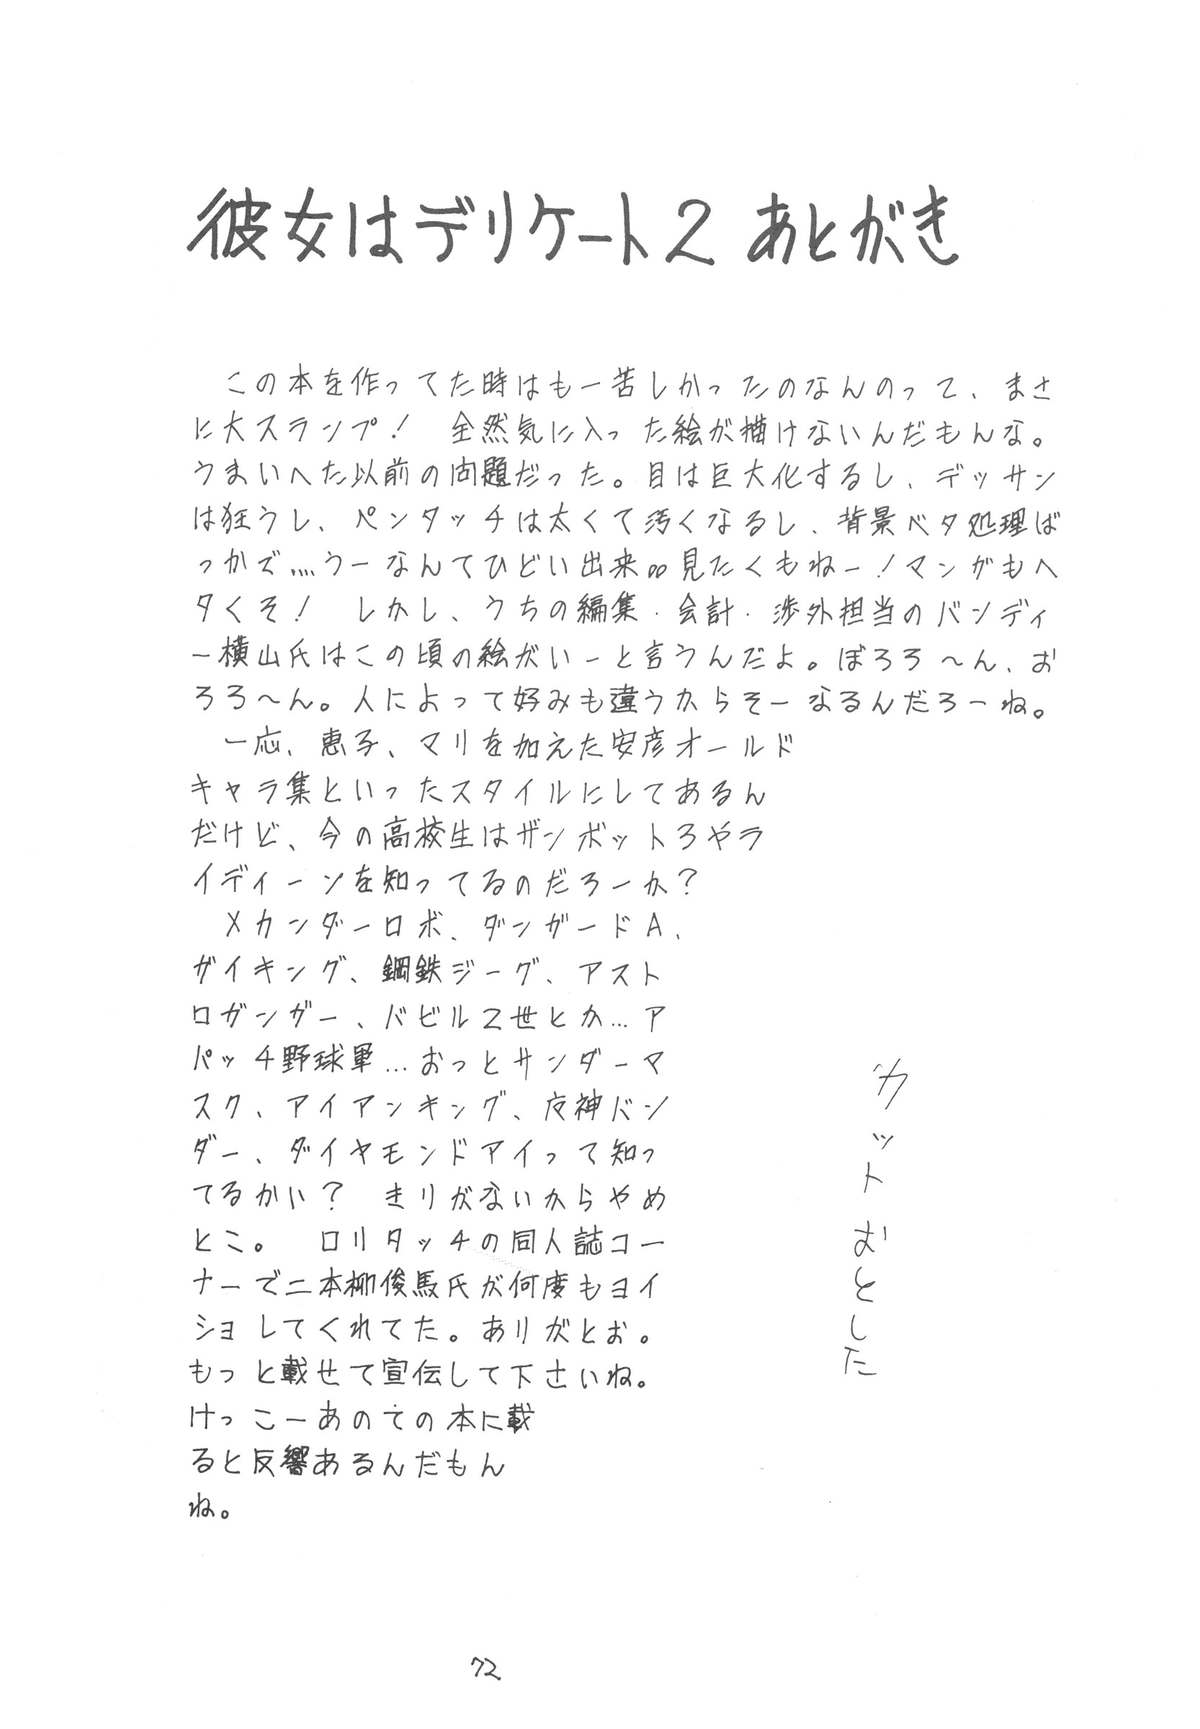 彼女はデリケート2 あとがき
この本を作ってた時はもー苦しかったのなんのって、まさ
に大スランプ! 全然気に入った絵が描けないんだもんな。
うまいへた以前の問題だった。目は巨大化するし、デッサン
は狂うし、ペンタッチは太くて汚くなるし、背景ベタ処理ば
っかで……うーなんてひどい出来。。見たくもねー!マンガもヘ
タくそ! しかし、うちの編集・会計・渉外担当のバンディ
ー横山氏はこの頃の絵がいーと言うんだよ。ぼろろ〜ん、お
ろろ〜ん。人によって好みも違うからそーなるんだろーね。
一応、恵子、マリを加えた安彦オールド
キャラ集といったスタイルにしてあるん
だけど、今の高校生はザンボット3やラ
イディーンを知ってるのだろーか?
メカンダーロボ、ダンガードA、
ガイキング、鋼鉄ジーグ、アスト
ロガンガー、バビル2世とか…ア
パッチ野球軍…おっとサンダーマ
スク、アイアンキング、魔神バン
ダー、ダイヤモンドアイって知っ
てるかい? きりがないからやめ
とこ。 ロリタッチの同人誌コー
ナーで二本柳俊馬氏が何度もヨイ
ショしてくれてた。ありがとお。
もっと載せて宣伝して下さいね。
けっこーあのての本に載
ると反響あるんだもん
ね。
カットおとした
72